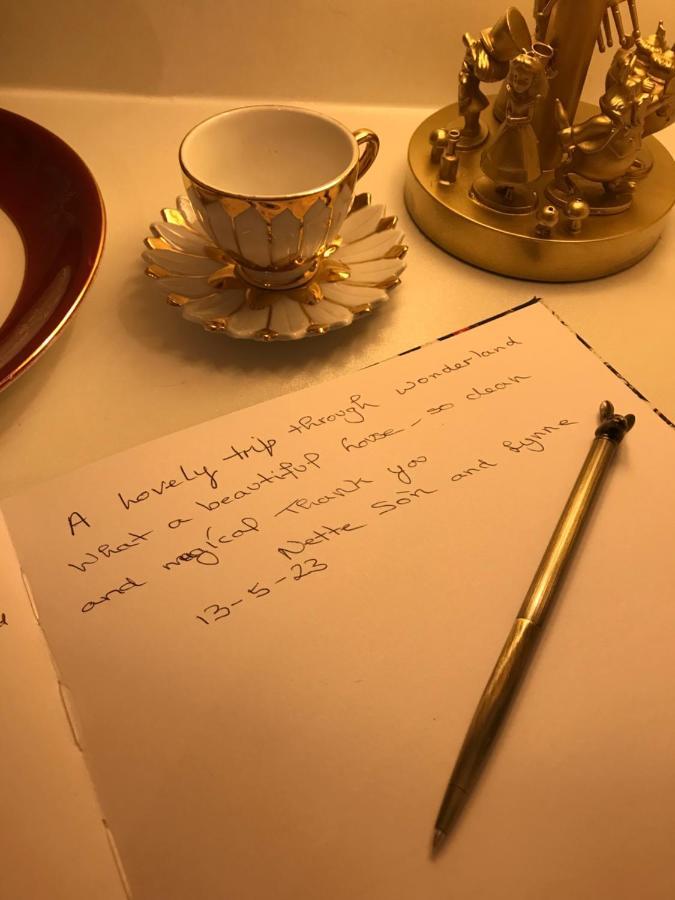 A Lovely trip through wonderland
What a beautiful house - so clean
and magical Thank you
Nette Son and Lynne
13-5-23